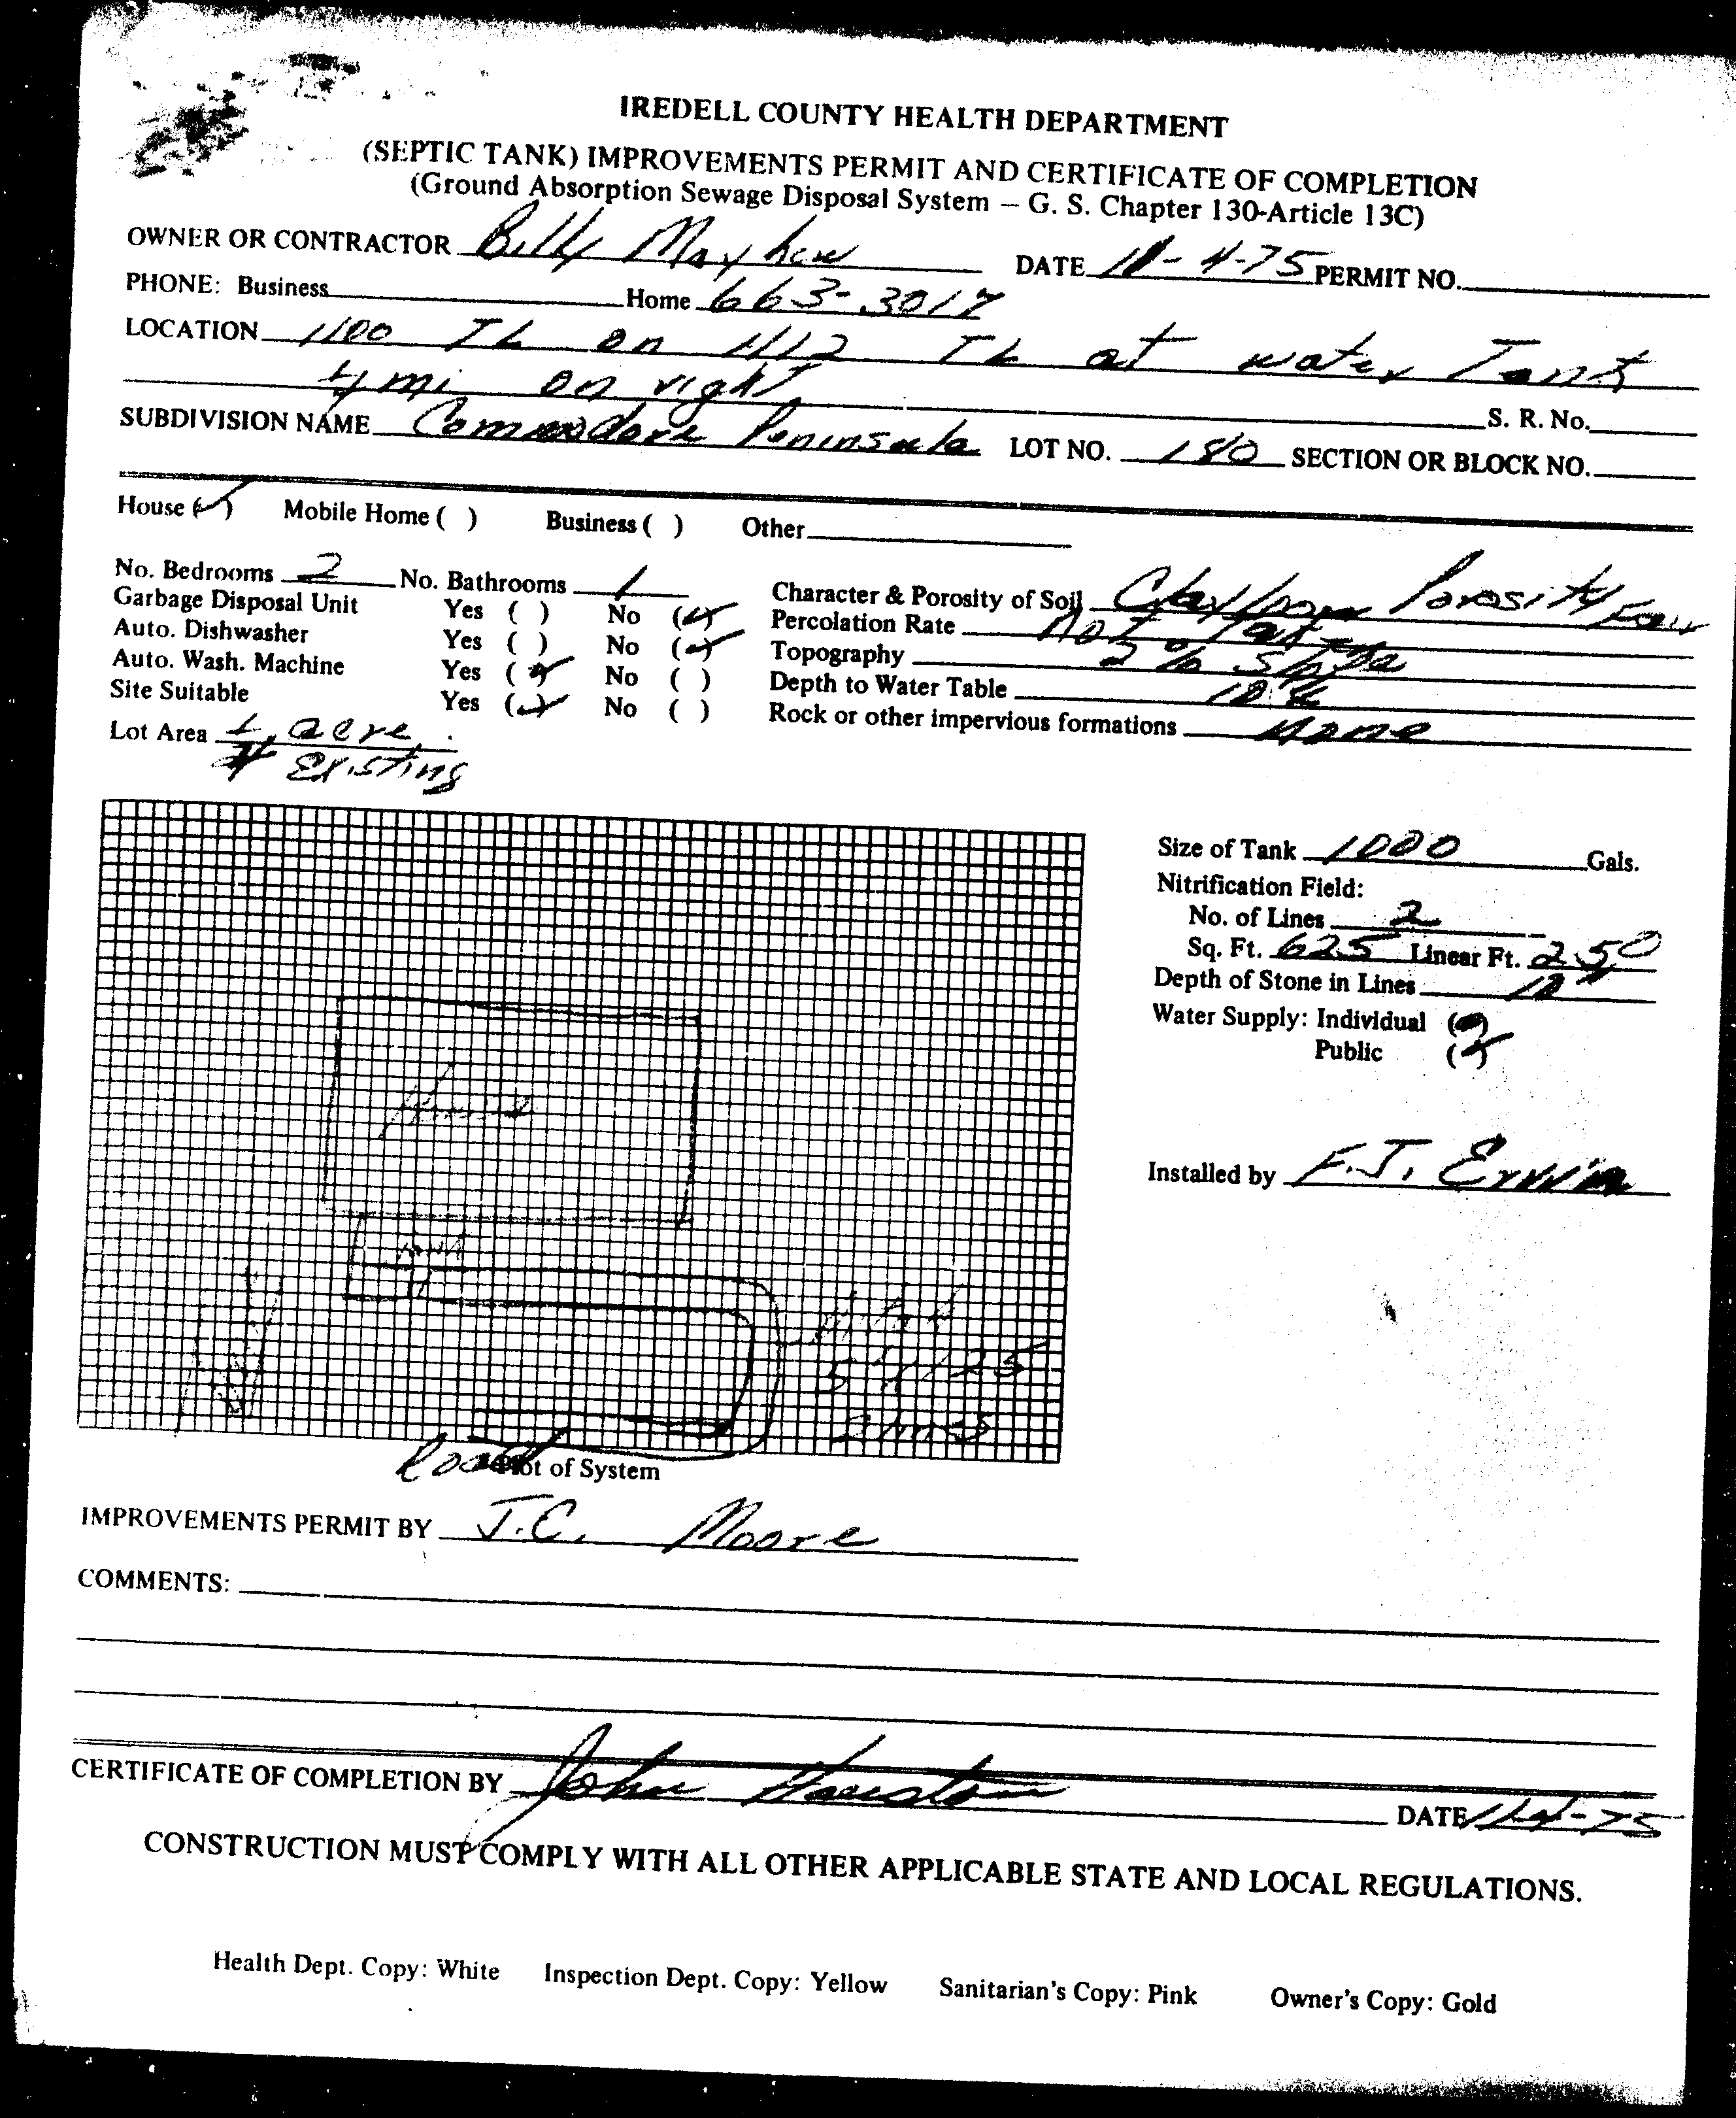 IREDELL COUNTY HEALTH DEPARTMENT
(SEPTIC TANK) IMPROVEMENTS PERMIT AND CERTIFICATE OF COMPLETION
(Ground Absorption Sewage Disposal System – G. S. Chapter 130-Article 13C)
OWNER OR CONTRACTOR Billy Mayhew DATE 11-4-75 PERMIT NO.
PHONE: Business Home 663-3017
LOCATION 1100 TL on 1112 TL at water Tank
4 mi on right S. R. No.
SUBDIVISION NAME Commodore Peninsula LOT NO. 180 SECTION OR BLOCK NO.
House (✓) Mobile Home ( ) Business ( ) Other
No. Bedrooms 2 No. Bathrooms 1
Garbage Disposal Unit Yes ( ) No (✓)
Auto. Dishwasher Yes ( ) No (✓)
Auto. Wash. Machine Yes (✓) No ( )
Site Suitable Yes (✓) No ( )
Lot Area acre
Existing
Character & Porosity of Soil Clay loam Porosity Fair
Percolation Rate Not
Topography 2% Slope
Depth to Water Table
Rock or other impervious formations none
Size of Tank 1000 Gals.
Nitrification Field:
No. of Lines 2
Sq. Ft. 625 Linear Ft. 250
Depth of Stone in Lines
Water Supply: Individual
Public (✓)
Installed by F.J. Erwin
House
Road
Plot of System
IMPROVEMENTS PERMIT BY J.C. Moore
COMMENTS:
CERTIFICATE OF COMPLETION BY John Houston DATE 11-4-75
CONSTRUCTION MUST COMPLY WITH ALL OTHER APPLICABLE STATE AND LOCAL REGULATIONS.
Health Dept. Copy: White Inspection Dept. Copy: Yellow Sanitarian's Copy: Pink Owner's Copy: Gold